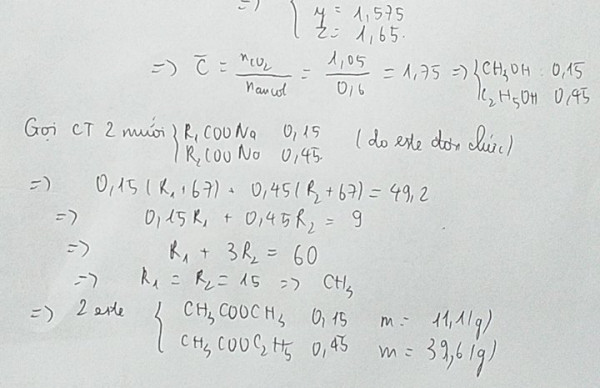 => { y = 1,575
z = 1,65.
=> C̄ = nCO2 / nancol = 1,05 / 0,6 = 1,75 => { CH3OH : 0,15
C2H5OH 0,45
Gọi CT 2 muối { R1COONa 0,15 (do este đơn chức)
R2COONa 0,45
=> 0,15(R1+67) + 0,45(R2+67) = 49,2
=> 0,15R1 + 0,45R2 = 9
=> R1 + 3R2 = 60
=> R1 = R2 = 15 => CH3
=> 2 este { CH3COOCH3 0,15 m = 11,1(g)
CH3COOC2H5 0,45 m = 39,6(g)